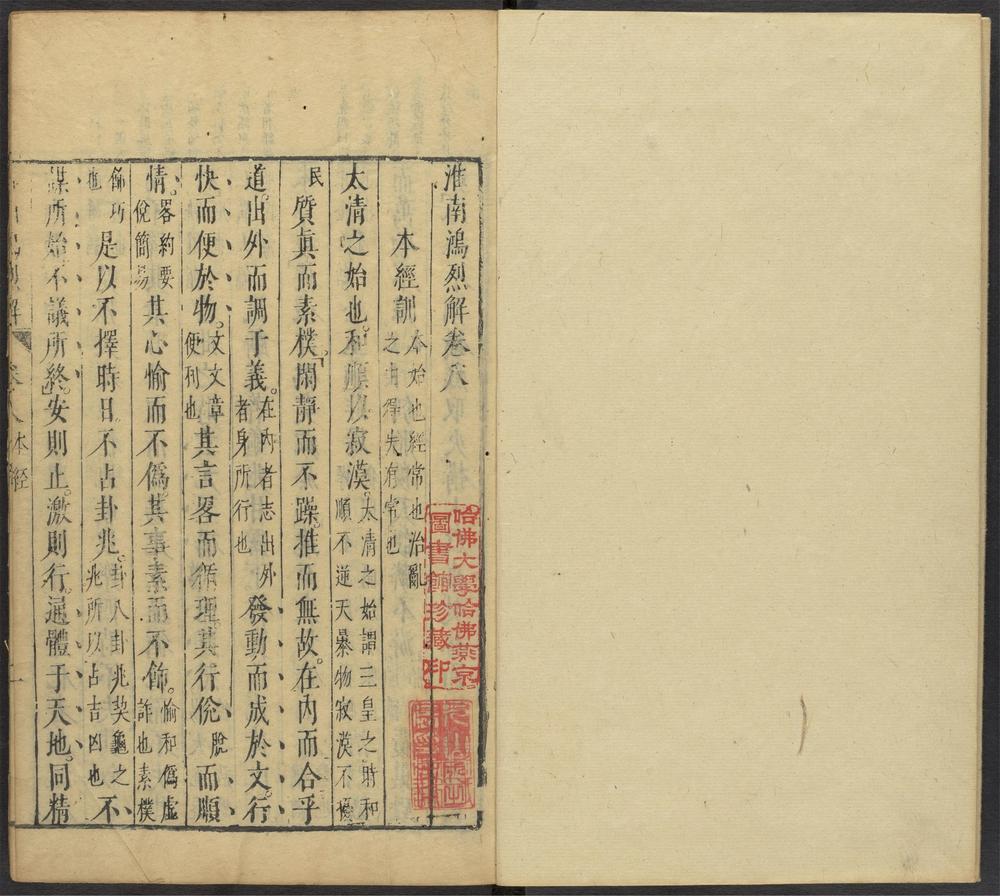 淮南鴻烈解卷八
本經訓 本始也經常也治亂之由得失有常也
太清之始也和順以寂漠。太清之始謂三皇之時和順不逆天暴物寂漠不擾
民 質眞而素樸。閑靜而不躁。推而無故。在內而合乎
道。出外而調于義。在內者志出外者身所行也 發動而成於文。行
快而便於物。文文章便利也 其言畧而循理。其行侻脫而順
情。畧約要侻簡易 其心愉而不僞。其事素而不飾。愉和僞虛詐也素樸
飾巧也 是以不擇時日不占卦兆。卦八卦兆契龜之兆所以占吉凶也 不
謀所始。不議所終。安則止。激則行。通體于天地。同精
卷八 本經 一
哈佛大學哈佛燕京
圖書館珍藏印